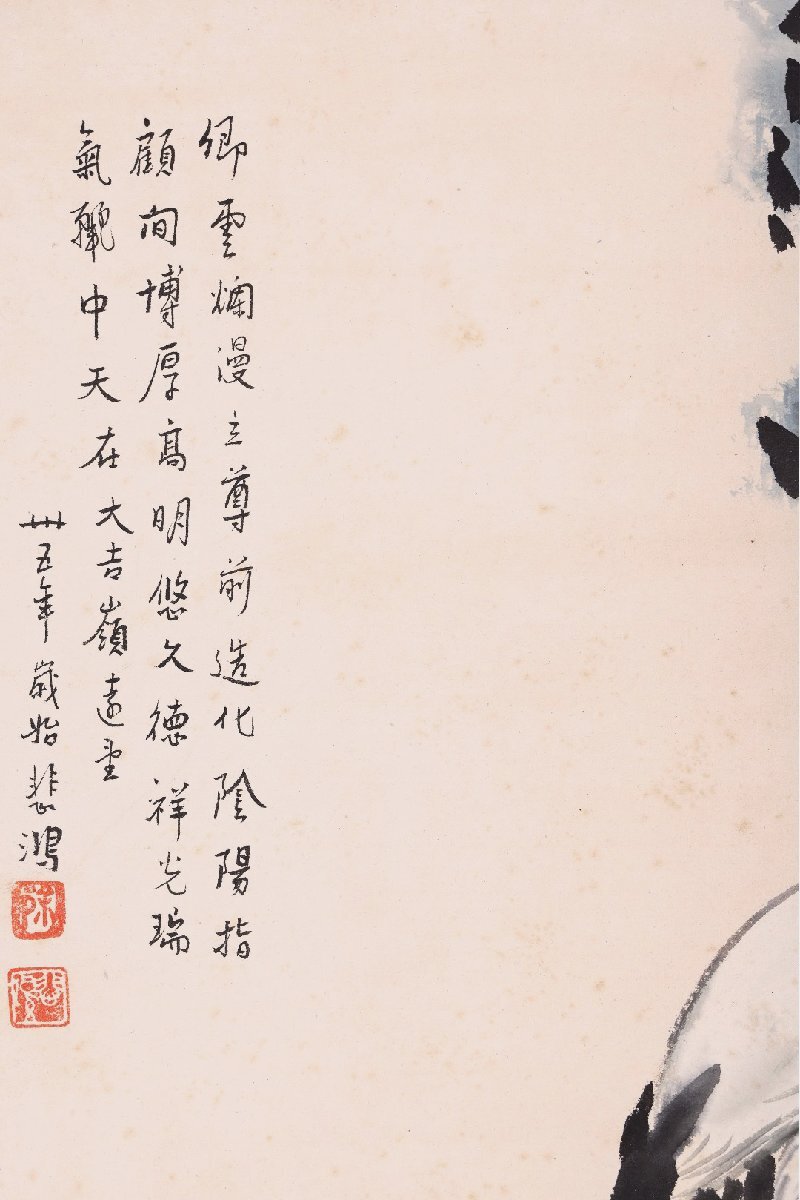 卿雲爛漫立尊前造化陰陽指
顧间博厚高明悠久德祥光瑞
氣罩中天在大吉嶺遠望
卅五年歲始悲鴻